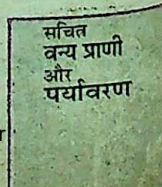 सचित्र
वन्य प्राणी
और
पर्यावरण